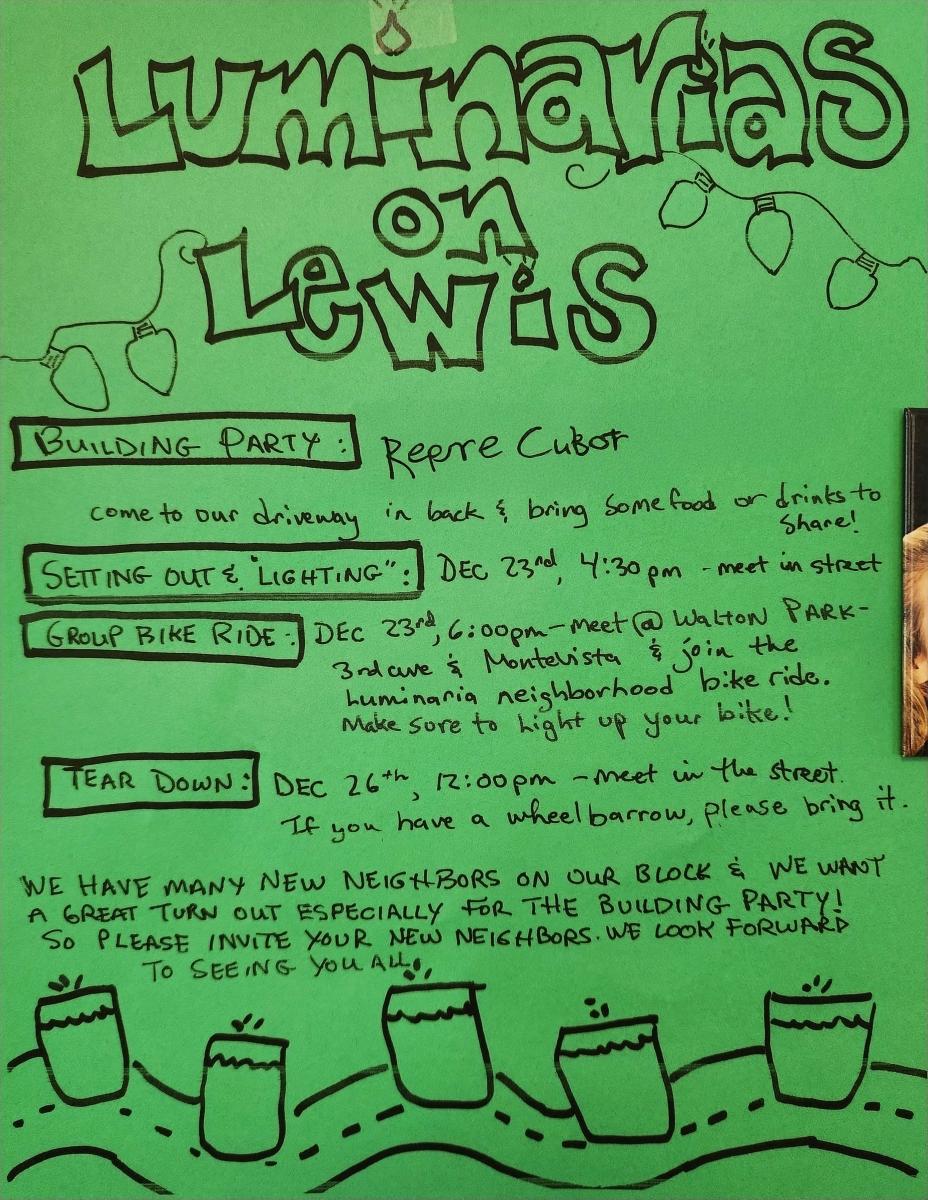 Luminarias
on
Lewis
BUILDING PARTY: Repre Cubot
come to our driveway in back & bring some food or drinks to
share!
SETTING OUT & "LIGHTING": DEC 23rd, 4:30pm - meet in street
GROUP BIKE RIDE: DEC 23rd, 6:00pm - meet @ WALTON PARK -
3rd ave & Montevista & join the
Luminaria neighborhood bike ride.
Make sure to Light up your bike!
TEAR DOWN: DEC 26th, 12:00pm - meet in the street.
If you have a wheelbarrow, please bring it.
WE HAVE MANY NEW NEIGHBORS ON OUR BLOCK & WE WANT
A GREAT TURN OUT ESPECIALLY FOR THE BUILDING PARTY!
SO PLEASE INVITE YOUR NEW NEIGHBORS. WE LOOK FORWARD
TO SEEING YOU ALL.